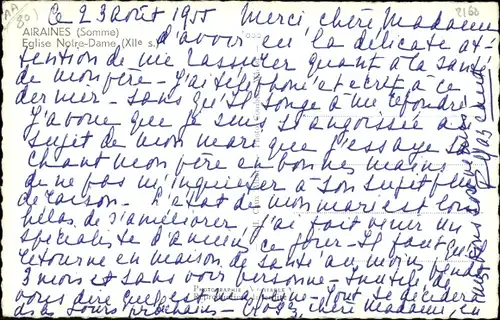 AA
80)
2160
Ce 23 août 1955 Merci, chère Madame
AIRAINES (Somme)
Eglise Notre-Dame (XIIe s.)
d'avoir eu la délicate at-
tention de me rassurer quant à la santé
de mon père - J'ai téléphoné et écrit à ce
dernier - sans qu'il songe à me répondre
J'avoue que je suis si angoissée au
sujet de mon mari que j'essaye sa
chant mon père en bonnes mains
de ne pas m'inquiéter à son sujet plus
de raison - L'état de mon mari est loin
hélas de s'améliorer, j'ai fait venir un
spécialiste d'Amiens ce jour - Il faut qu'il
retourne en maison de santé au moins pendant
3 mois et sans voir personne - Inutile de
vous dire quelle est ma peine - Tout se décidera
ds les jours prochains - chère Madame, en
PHOTOGRAPHIE VÉRITABLE